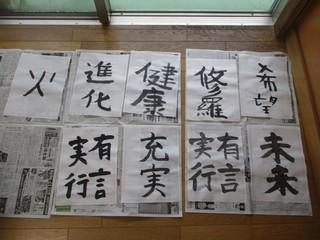 火
進化
健康
修羅
希望
有言
実行
充実
有言
実行
未来